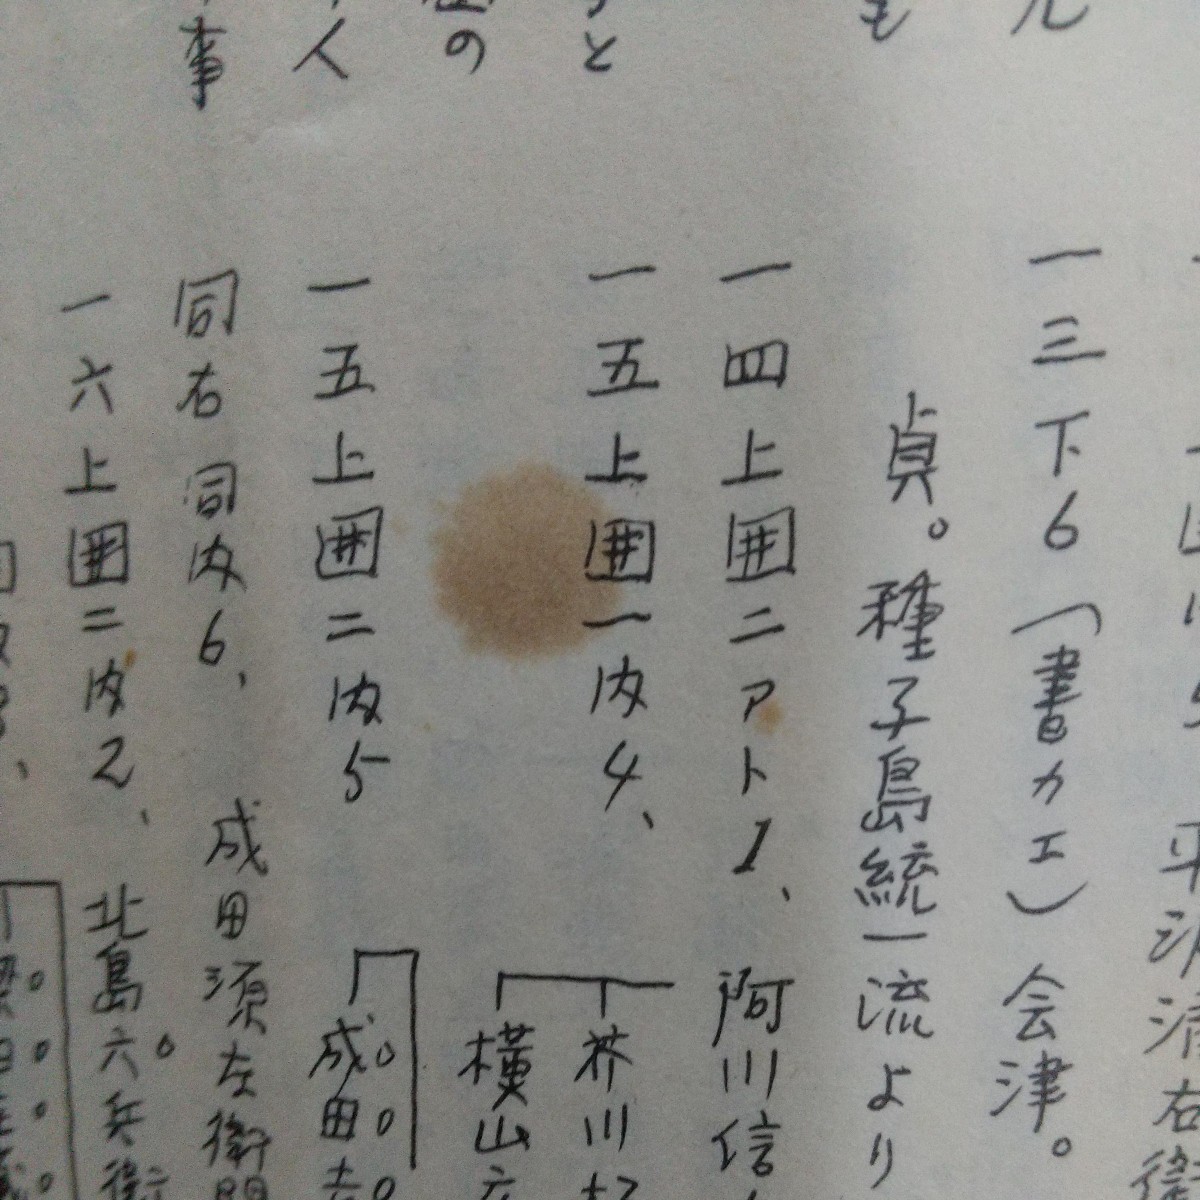 平
清右衛
ル
一三下6(書カエ)会津。
も
貞。種子島統一流より
一四上囲ニアト1、阿川信
と
一五上囲一内4、芥川
横山
の
一五上囲ニ内5 成田
人
同右同内6、 成田須左衛門
事
一六上囲ニ内2、北島六兵衛